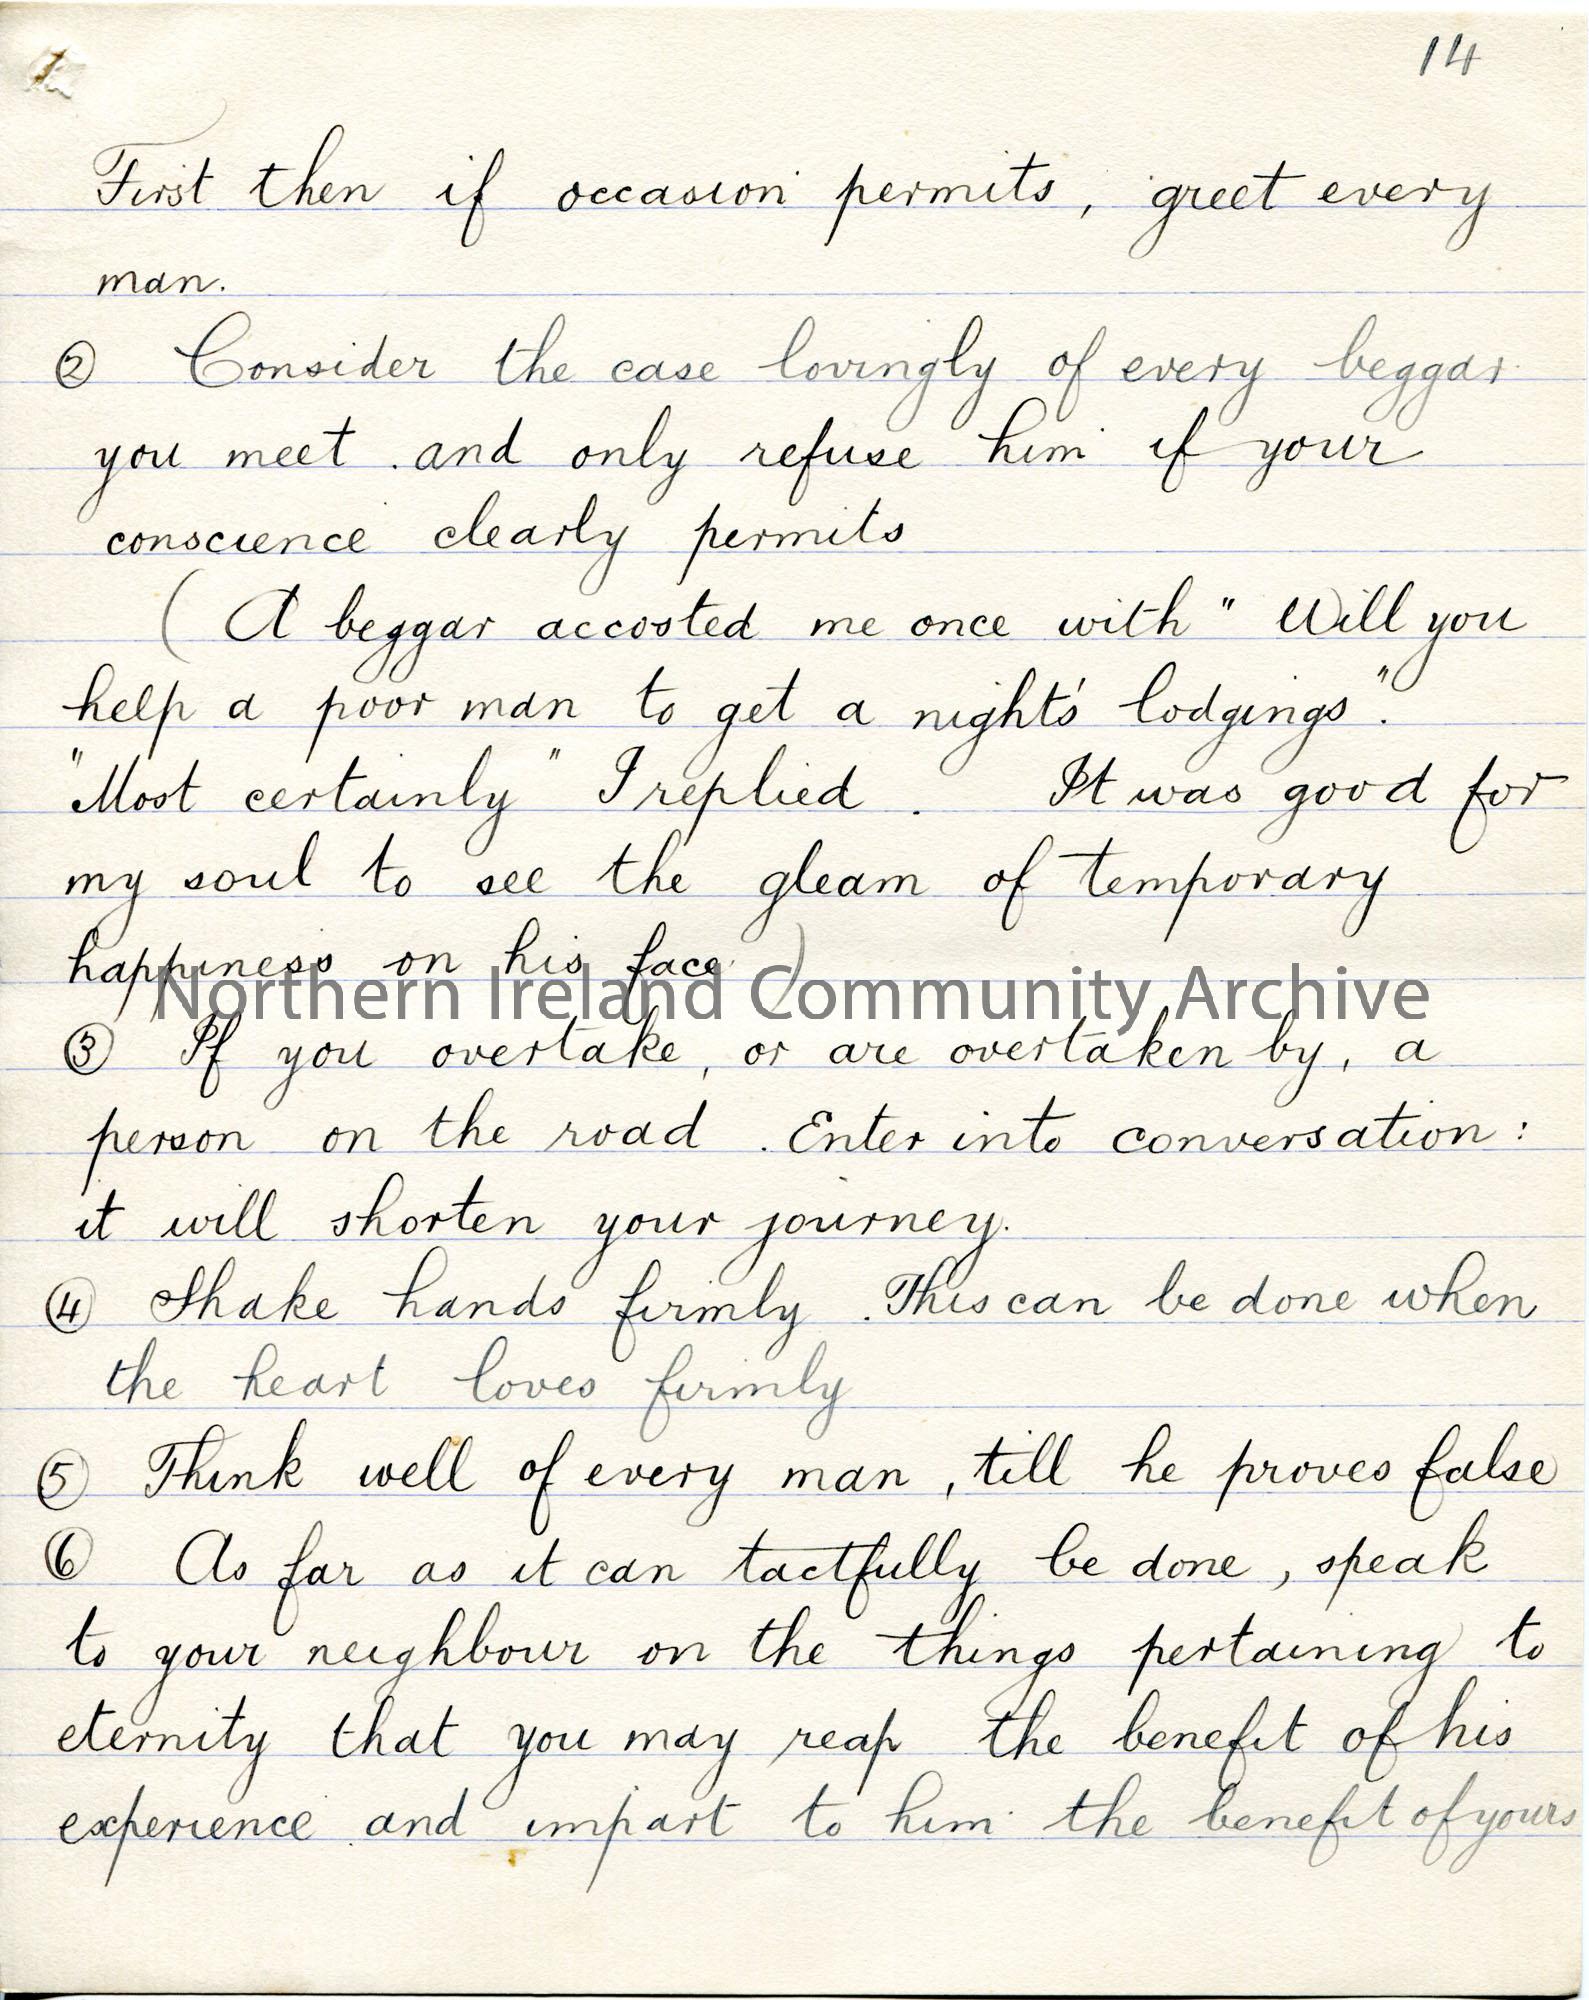 14
First then if occasion permits, greet every
man.
② Consider the case lovingly of every beggar
you meet . and only refuse him if your
conscience clearly permits
( A beggar accosted me once with " Will you
help a poor man to get a night's lodgings".
"Most certainly" I replied . It was good for
my soul to see the gleam of temporary
happiness on his face )
Northern Ireland Community Archive
③ If you overtake, or are overtaken by, a
person on the road . Enter into conversation :
it will shorten your journey.
④ Shake hands firmly . This can be done when
the heart loves firmly
⑤ Think well of every man , till he proves false
⑥ As far as it can tactfully be done, speak
to your neighbour on the things pertaining to
eternity that you may reap the benefit of his
experience and impart to him the benefit of yours